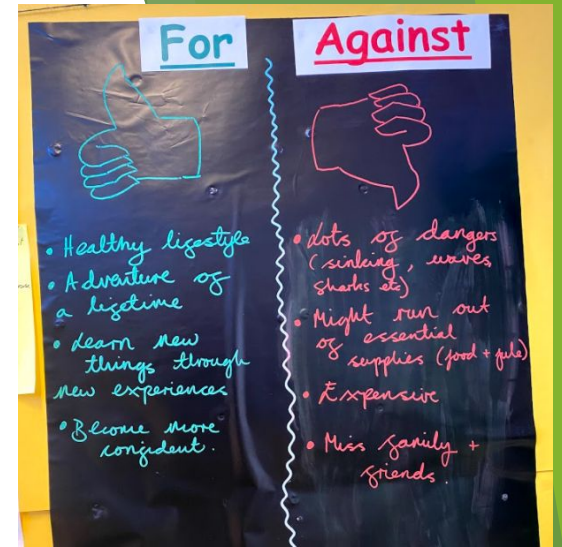 For
• Healthy lifestyle
• Adventure of
a lifetime
• Learn new
things through
new experiences
• Become more
confident.
Against
• Lots of dangers
(sinking, waves,
sharks etc)
• Might run out
of essential
supplies (food + fule)
• Expensive
• Miss family +
friends.